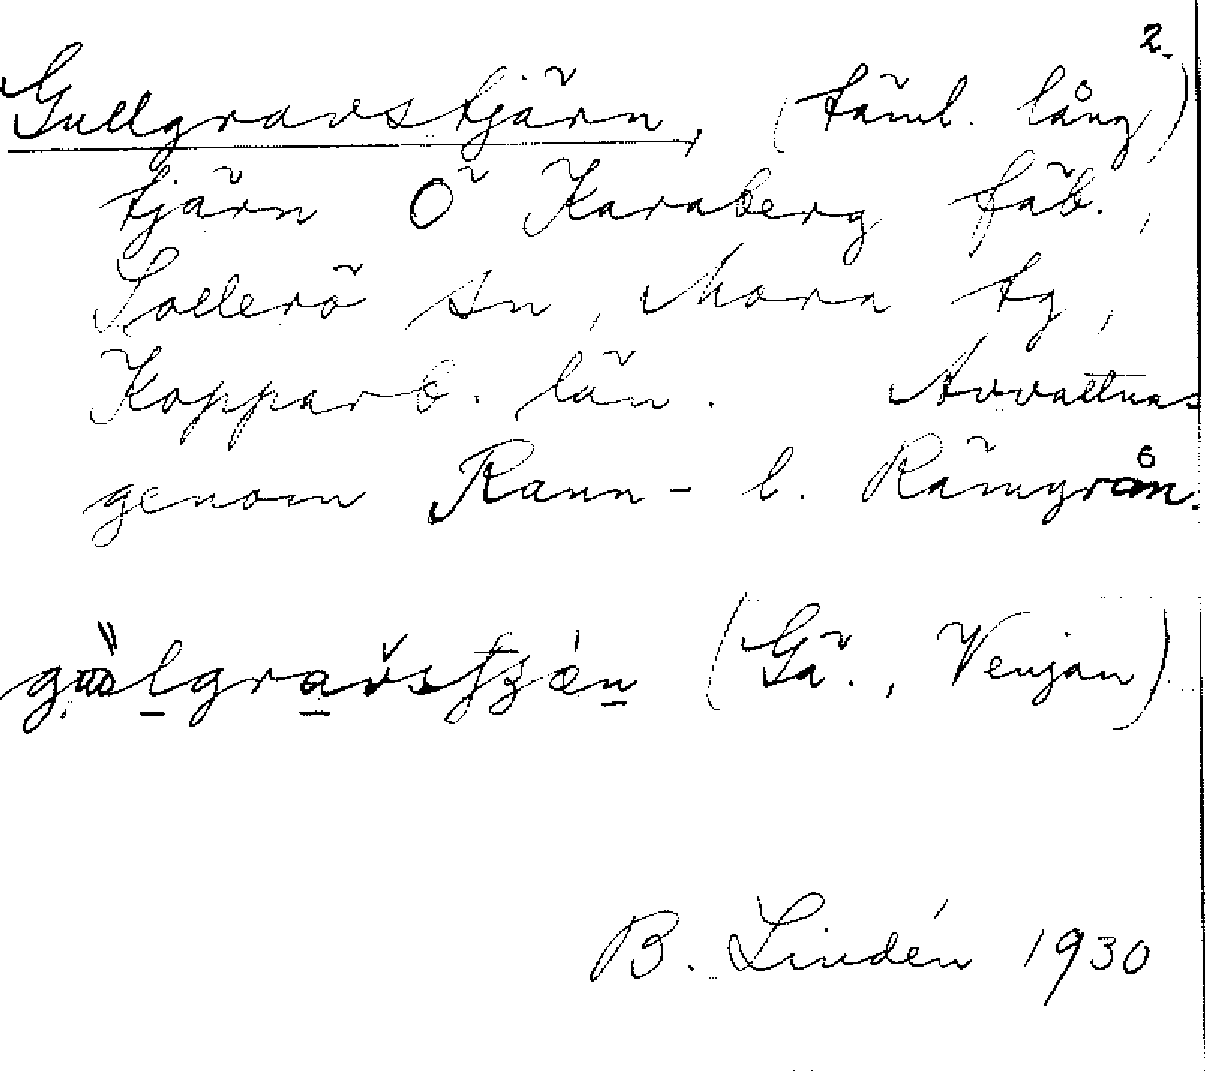 2.
Gullgravstjärn, (täml. lång)
tjärn Ö Karaberg fäb.,
Sollerö sn, Mora tg,
Kopparb. län. Avvattnas
genom Rann- l. Rämgrån.
(Gä., Venjan)
B. Lindén 1930